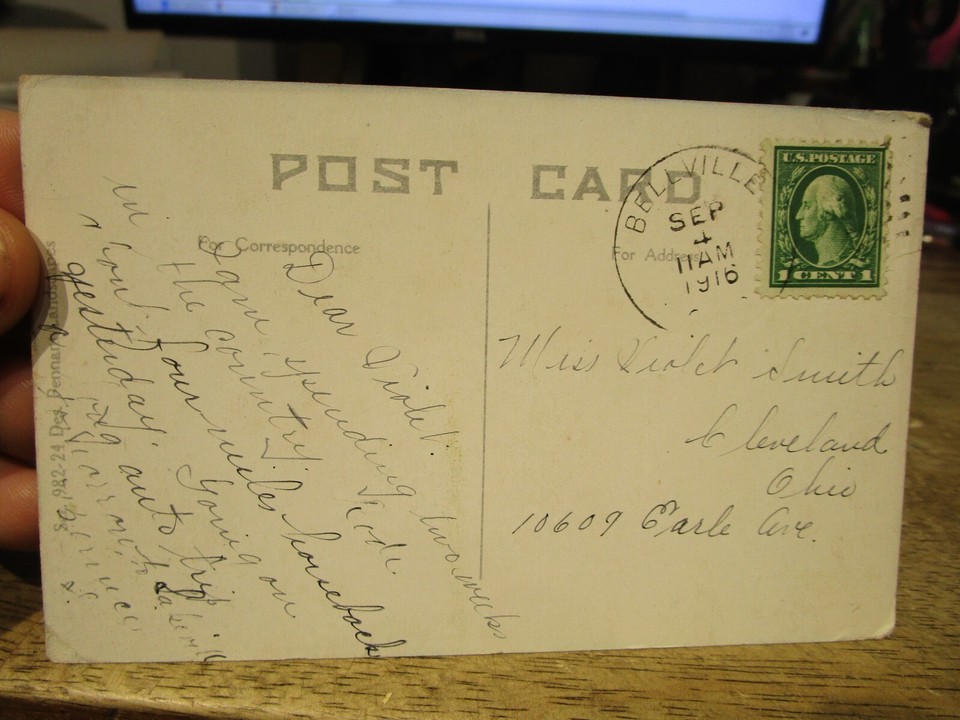 POST CARD
For Correspondence
For Address
BELLVILLE
SEP
4
11AM
1916
U.S. POSTAGE
1 CENT 1
Dear Violet
I am spending two weeks
in the country. Rode
about four miles horseback
yesterday. Going on
an auto trip
Miss Violet Smith
Cleveland
Ohio
10609 Earle Ave.